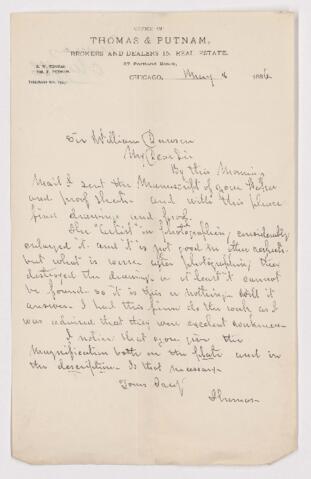 OFFICE OF
THOMAS & PUTNAM,
BROKERS AND DEALERS IN REAL ESTATE.
CHICAGO, May 6 1886
Sir William Dawson
My Dear Sir
By this Morning
Mail I sent the Manuscript of your Paper
and proof sheets and with this please
find drawing and proof.
The "artist" in photographing considerably
enlarged it and it is not good in other respects
but what is worse after photographing they
destroyed the drawing or at least it cannot
be found so it is this or nothing will it
answer. I had this firm do the work as I
was advised that they were excellent workmen
I notice that you give the
Magnification both on the plate and in
the description. Is that necessary
Yours Truly
Thomas